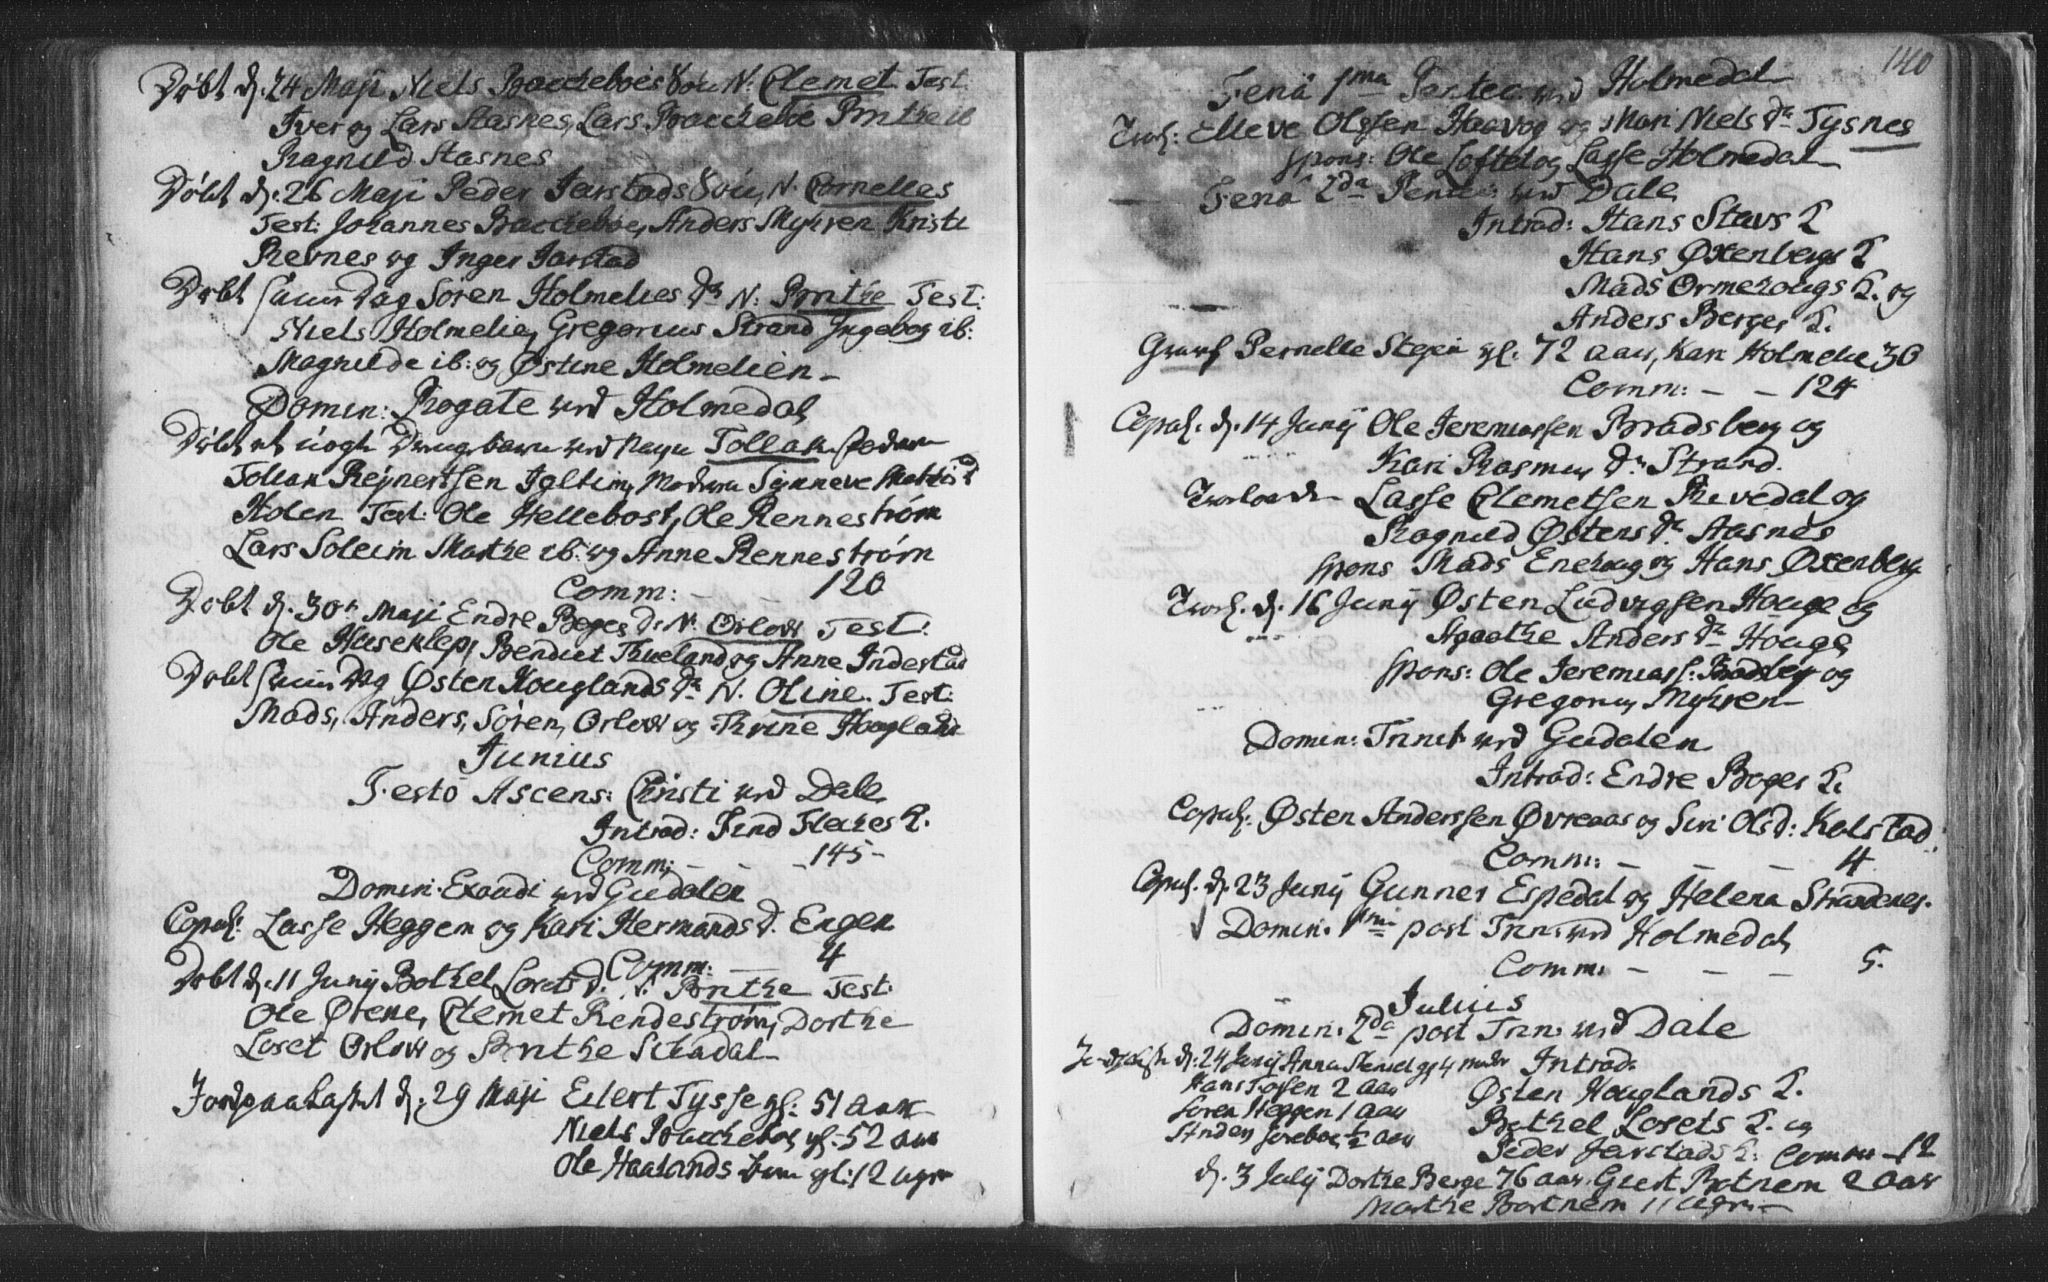 Døbt d. 24 Maji Niels Baccheboes Søn N. Clemet Test.
Iver og Lars Aasnes, Lars Bacchebøe Brithe ib
Ragnild Aasnes
Døbt d. 26 Maji Peder Jarstads Søn, N. Cornelles
Test: Johannes Bacchebøe, Anders Myhren Kristi
Revnes og Inger Jarstad
Døbt samme Dag Søren Holmelies Dr N: Brithe Test:
Niels Holmelie, Gregorius Strand Ingebog ib:
Magnilde ib: og Østine Holmelien
Domin: Rogate ved Holmedal
Døbt et uægte Drengebarn ved Navn Tollak
Tollak Reinertsen Moderen Synneve
Holen Test: Ole Hellebost, Ole Rennestrøm
Lars Soleim Marthe ib: og Anne Rennestrøm
Comm: - 120
Døbt d. 30te Maji Endre Boges D. N. Orlow Test:
Ole Huseklep, Bendict Thueland og Anne Indestad
Døbt samme Dag Østen Houglands Dr N. Oline. Test:
Mads, Anders, Søren, Orlow og Thrine Hougland
Junius
Festo Ascens: Christi ved Dale
Introd: Find Fleches K.
Comm: - - - 145 -
Domin: Exaudi ved Gudalen
Copul: Lasse Heggem og Kari Hermands D. Engen
Comm: - 4
Døbt d. 11 Junij Bothel Losets D. N. Brithe Test:
Ole Øiene, Clemet Rendestrøm, Dorthe
Loset Orlow og Brithe Schadal
Jordpaakastet d. 29 Maji Eilert Tysse gl. 51 aar
Niels Bacchebøe gl. 52 aar
Ole Haalands gl: 12 uger
140
Feria 1ma Pentec: ved Holmedal
Trol: Elleve Olssen Haavog og Mari Niels Dr Tysnes
spons: Ole Loftet og Lasse Holmedal
Feria 2da Pentec: ved Dale
Introd: Hans Stavs K
Hans Øxenbergs K
Mads Ormehougs K. og
Anders Berges K.
Gravf Pernelle Steien gl. 72 aar, Kari Holmelie 30
Comm: - - 124
Copul. d. 14 Junij Ole Jeremiassen Bradsberg og
Kari Rasmus Dr Strand.
Trolovede Lasse Clemetsen Revedal og
Ragnild Østens Dr Aasnes
spons Mads Enehoug og Hans Øxenberg
Trol. d. 16 Junij Østen Ludvigsen Houge og
Agathe Anders Dr Houge
spons: Ole Jeremiass: Bradsberg og
Gregorius Myhren
Domin: Trinit ved Gudalen
Introd: Endre Boges K.
Copul. Østen Anderssen Øvreaas og Siri Ols D: Kolstad
Comm: - - - 4
Copul. d. 23 Junij Gunner Espedal og Helena Strandenes.
Domin. 1mi post Trin: ved Holmedal
Comm: - - - 5.
Julius
Domin. 2da post Trin: ved Dale
d. 24 Junij Anna Introd.
Hans 2 aar Østen Houglands K.
Søren Heggen 1 aar Bothel Losets K. og
1/2 aar Peder Jarstads K. Comm - 12
d. 3 Julij Dorthe Berge 76 aar. Giert Botnem 2 aar
Marthe Bortnem 11 uger